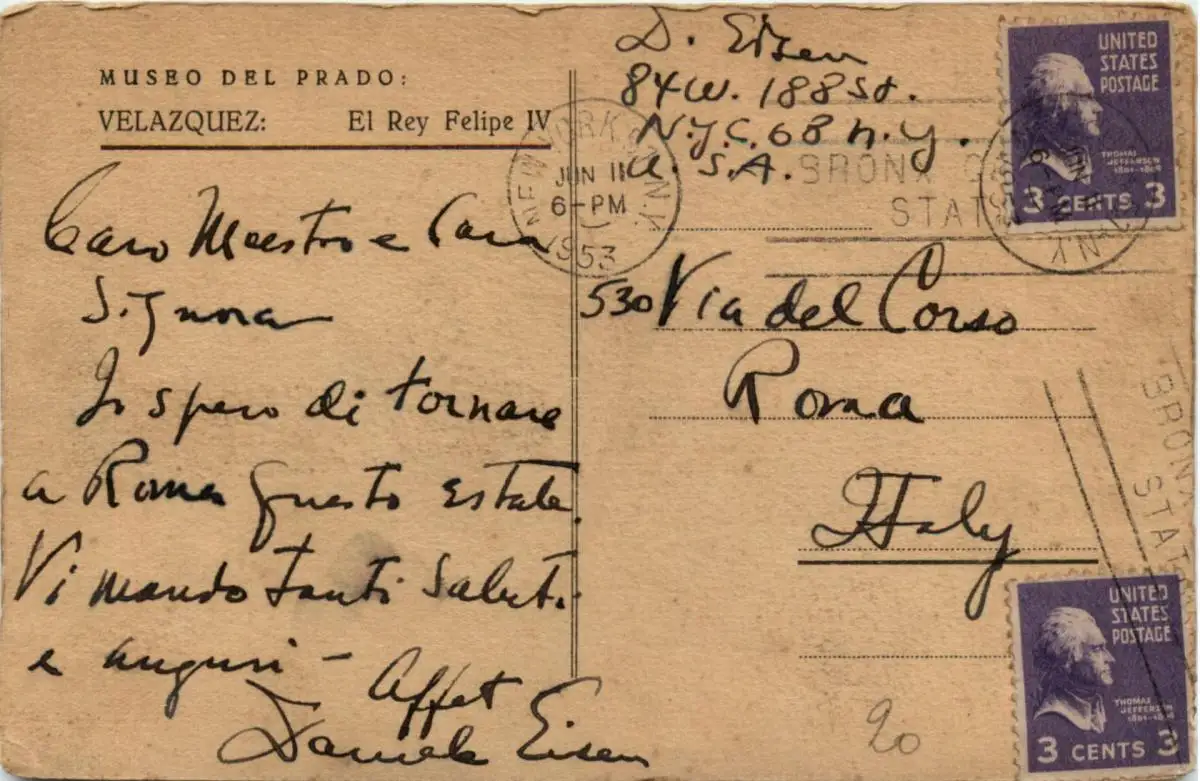 MUSEO DEL PRADO:
VELAZQUEZ: El Rey Felipe IV
Caro Maestro e Cara
Signora
Io spero di tornare
a Roma questo estate.
Vi mando tanti saluti
e auguri - Affet
Daniele Eisen
D. Eisen
84 W. 188 St.
N.Y.C. 68 N.Y.
U.S.A.
NEW YORK N.Y.
JUN 11
6-PM
1953
BRONX
STAT
530 Via del Corso
Roma
Italy
UNITED
STATES
POSTAGE
THOMAS
JEFFERSON
3 CENTS 3
BRONX
STAT
UNITED
STATES
POSTAGE
THOMAS
JEFFERSON
3 CENTS 3
20